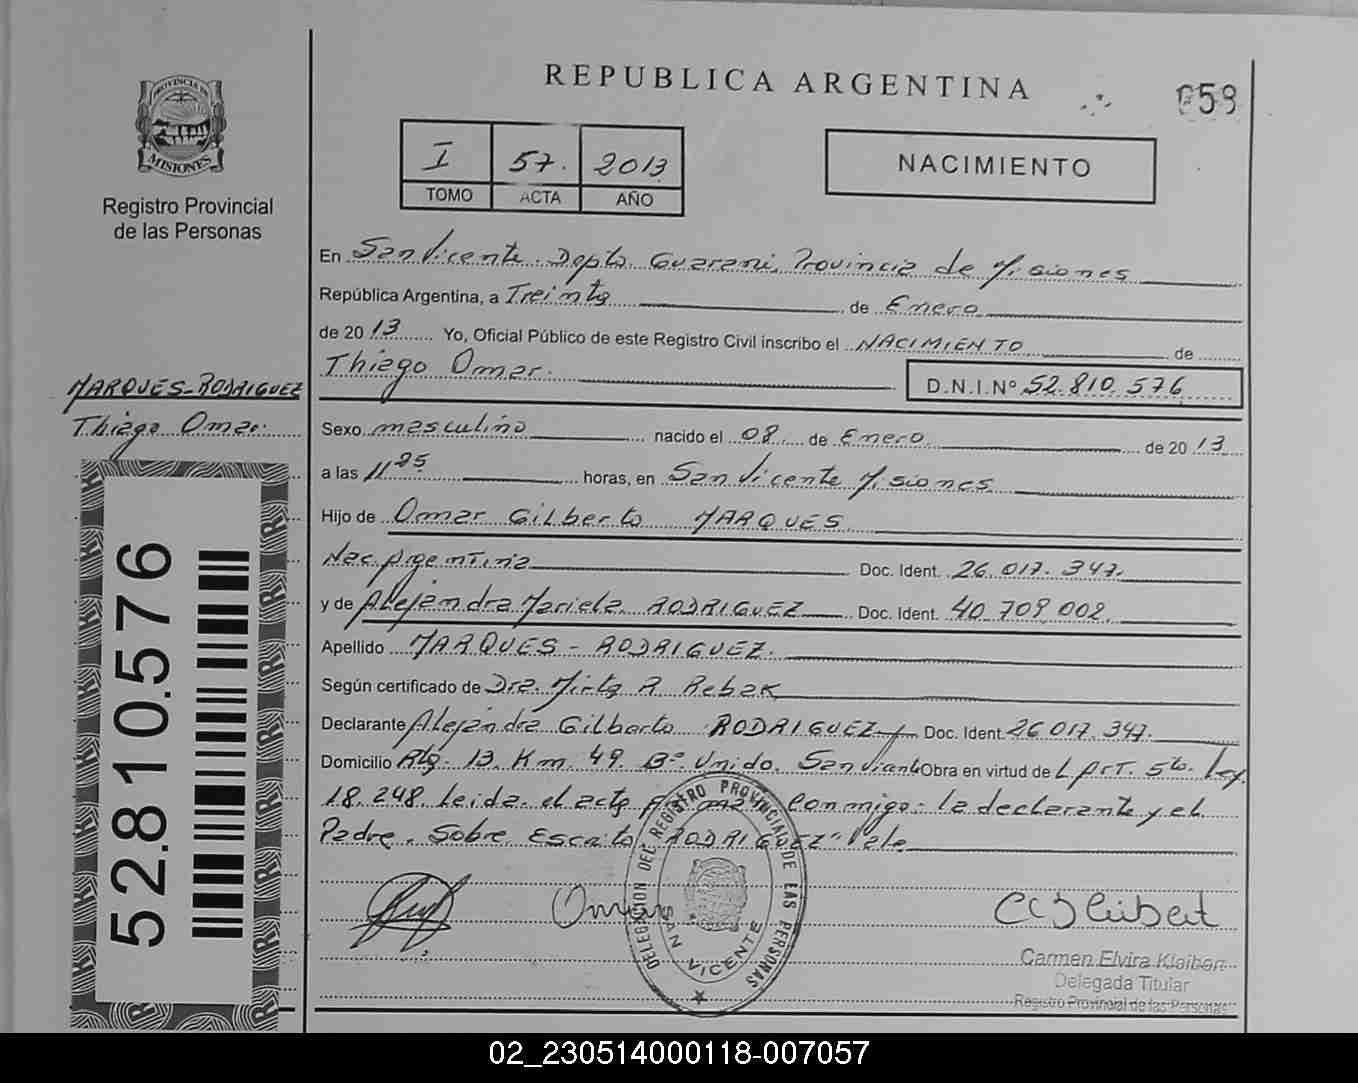 REPUBLICA ARGENTINA
059
PROVINCIA DE
MISIONES
Registro Provincial
de las Personas
I 57. 2013
TOMO ACTA AÑO
NACIMIENTO
En San Vicente. Dpto. Guarani, Provincia de Misiones
República Argentina, a Treinta de Enero
de 2013 Yo, Oficial Público de este Registro Civil inscribo el NACIMIENTO de
Thiago Omar. D.N.I.Nº 52.810.576
MARQUES-RODRIGUEZ
Thiago Omar.
Sexo masculino nacido el 08 de Enero de 2013
a las 11 25 horas, en San Vicente Misiones
Hijo de Omar Gilberto MARQUES
Nac. Argentina Doc. Ident. 26.017.347.
y de Alejandra Mariela RODRIGUEZ Doc. Ident. 40.709.002.
Apellido MARQUES - RODRIGUEZ.
Según certificado de Dra. Mirta R Rebak
Declarante Alejandra Gilberto RODRIGUEZ y Doc. Ident. 26.017.347.
Domicilio Rta. 13. Km. 49. Bº Unido. San Vicente Obra en virtud de L Art. 5to. Ley
18.248. Leida el acta Conmigo: la declarante y el
Padre. Sobre Escrito RODRIGUEZ" Vale
52.810.576
DELEGACION DEL REGISTRO PROVINCIAL DE LAS PERSONAS
SAN VICENTE
Omar
Carmen Elvira Klaibert
Delegada Titular
Registro Provincial de las Personas
02_230514000118-007057